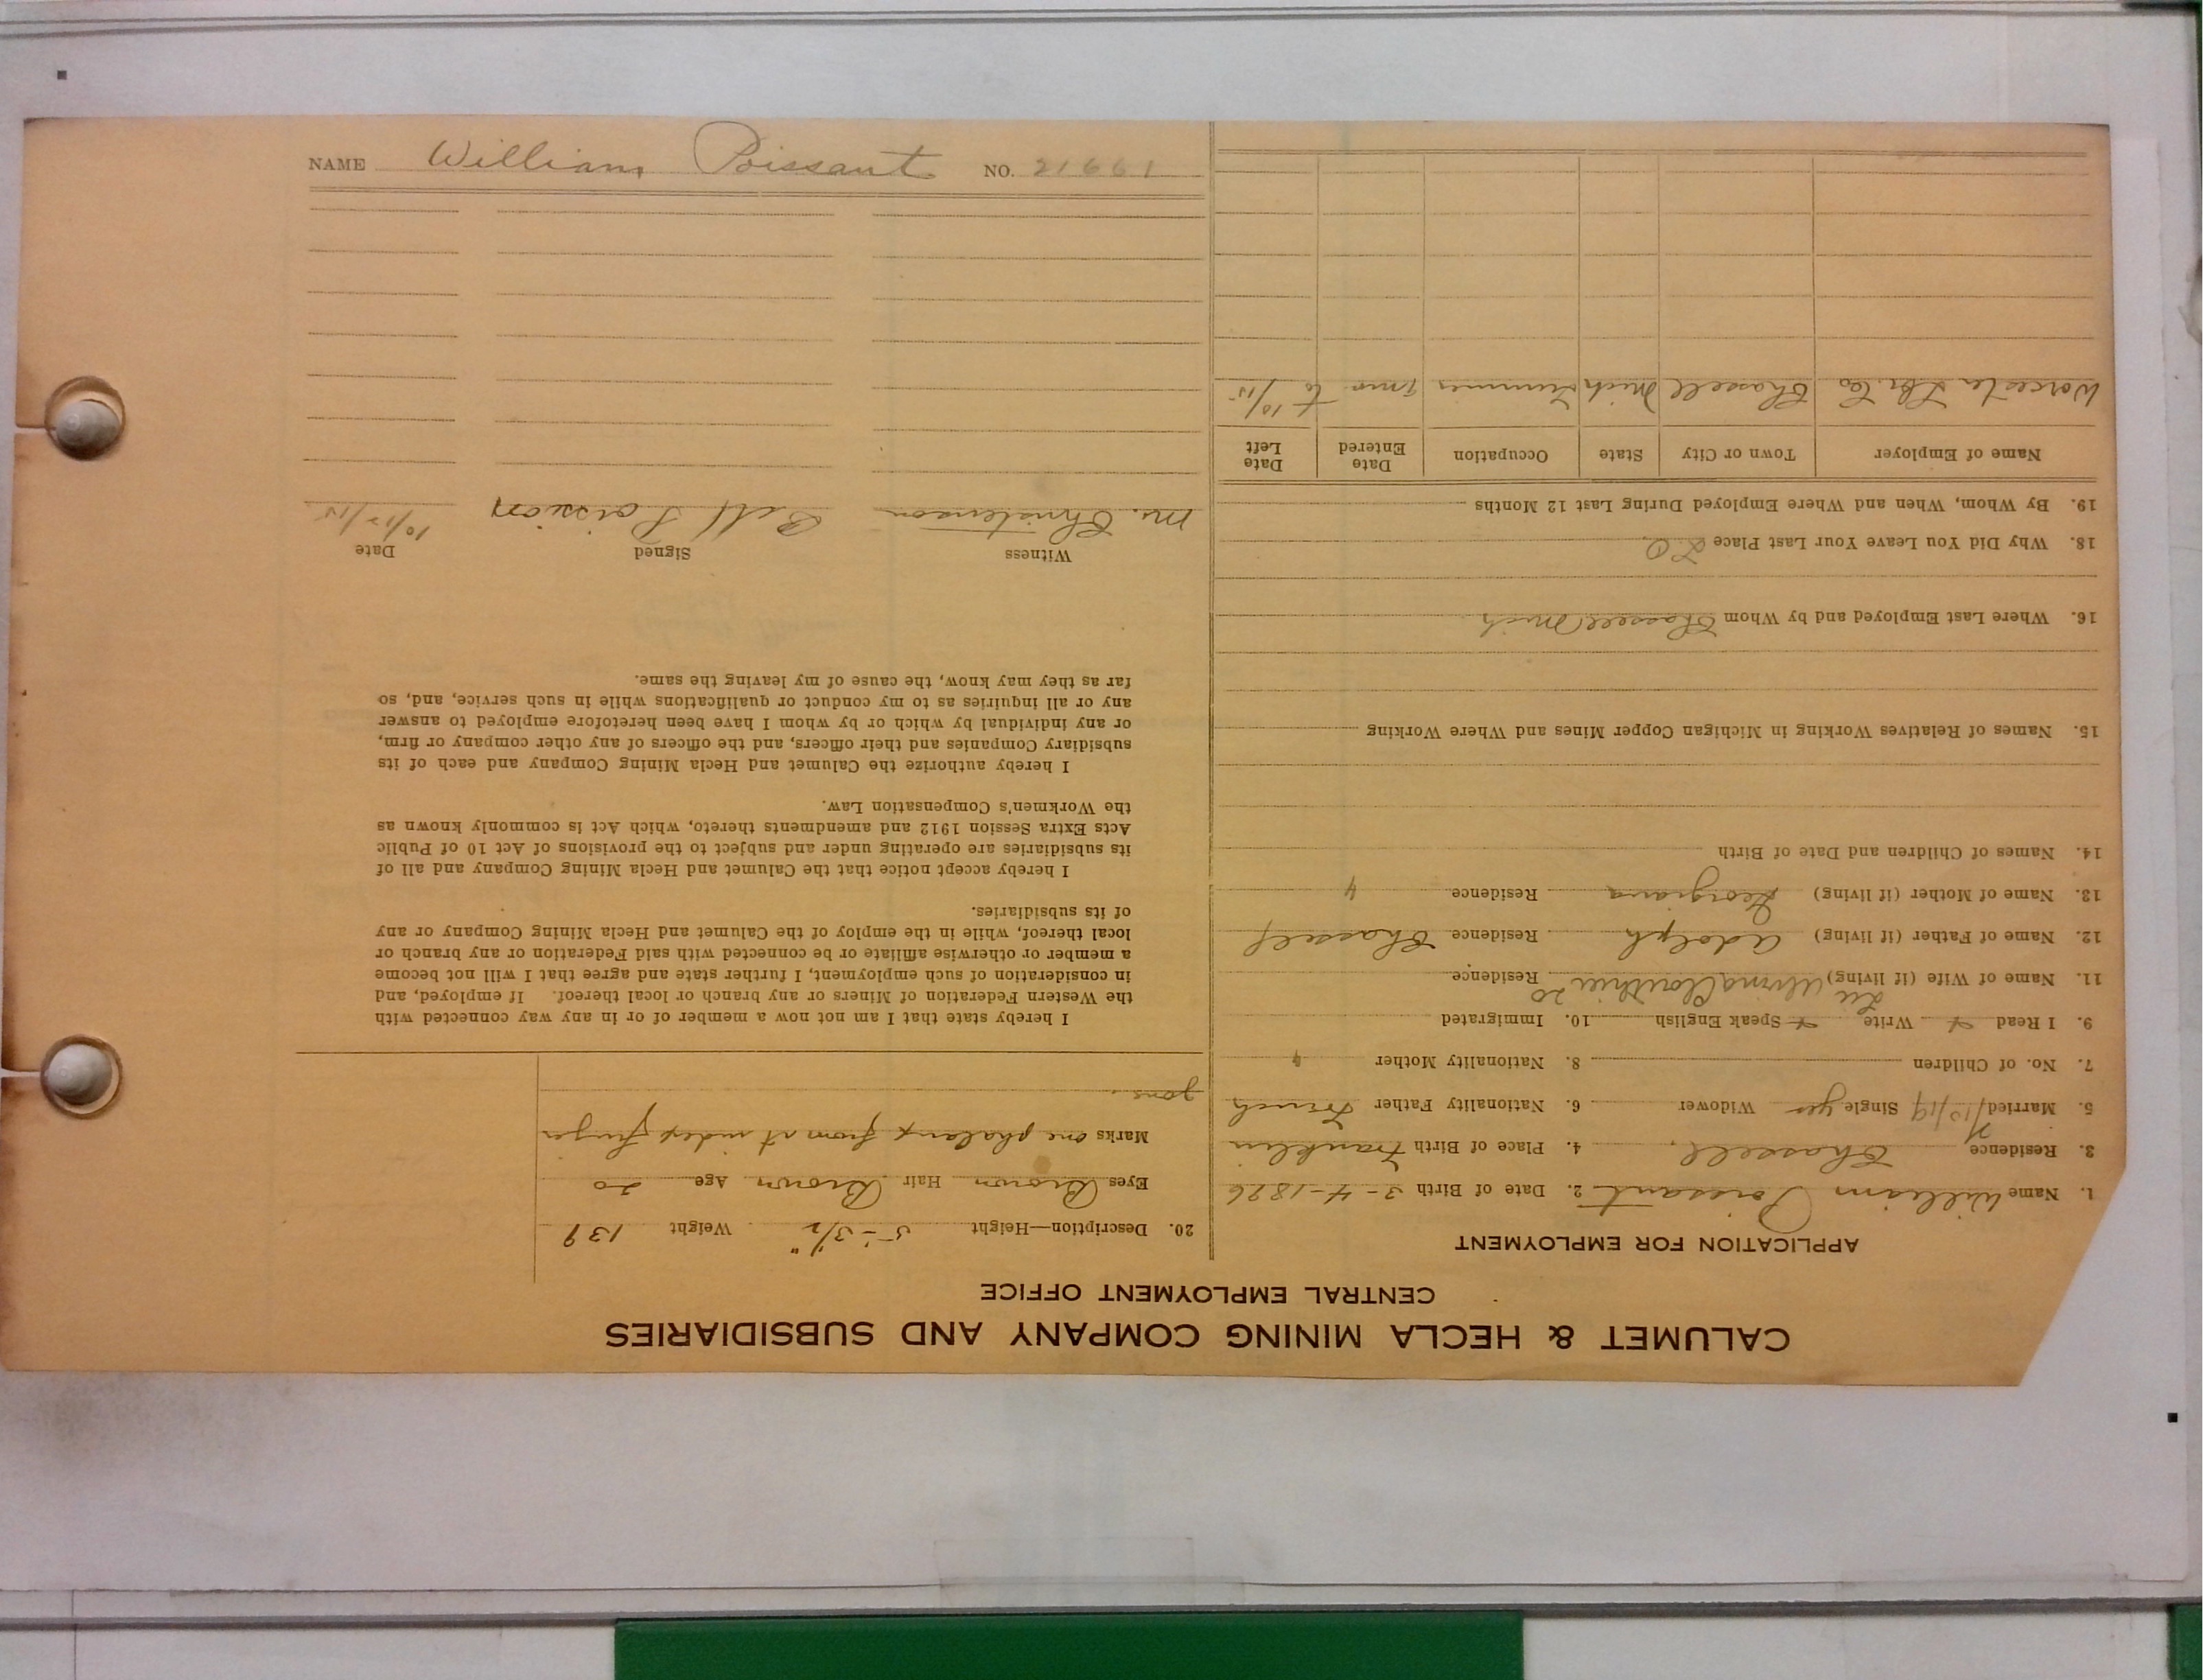 NAME William Poissant NO. 21661
CALUMET & HECLA MINING COMPANY AND SUBSIDIARIES
CENTRAL EMPLOYMENT OFFICE
APPLICATION FOR EMPLOYMENT
1. Name William Poissant 2. Date of Birth 3-4-1896
3. Residence Chassell, 4. Place of Birth Franklin
5. Married 7/15/19 Single yes Widower 6. Nationality Father French
7. No. of Children 8. Nationality Mother "
9. I Read + Write + Speak English 10. Immigrated
11. Name of Wife (if living) Alvina Clouthier 20 Residence
12. Name of Father (if living) Adolph Residence Chassell
13. Name of Mother (if living) Georgiana Residence "
14. Names of Children and Date of Birth
15. Names of Relatives Working in Michigan Copper Mines and Where Working
16. Where Last Employed and by Whom Chassell Mich
18. Why Did You Leave Your Last Place LO
19. By Whom, When and Where Employed During Last 12 Months
Name of Employer Town or City State Occupation Date Entered Date Left
Worcester Lbr. Co Chassell Mich 10/15
20. Description—Height 5'-3½" Weight 139
Eyes Brown Hair Brown Age 20
Marks one phalanx from rt index finger
gone.
I hereby state that I am not now a member of or in any way connected with
the Western Federation of Miners or any branch or local thereof. If employed, and
in consideration of such employment, I further state and agree that I will not become
a member or otherwise affiliate or be connected with said Federation or any branch or
local thereof, while in the employ of the Calumet and Hecla Mining Company or any
of its subsidiaries.
I hereby accept notice that the Calumet and Hecla Mining Company and all of
its subsidiaries are operating under and subject to the provisions of Act 10 of Public
Acts Extra Session 1912 and amendments thereto, which Act is commonly known as
the Workmen's Compensation Law.
I hereby authorize the Calumet and Hecla Mining Company and each of its
subsidiary Companies and their officers, and the officers of any other company or firm,
or any individual by which or by whom I have been heretofore employed to answer
any or all inquiries as to my conduct or qualifications while in such service, and, so
far as they may know, the cause of my leaving the same.
Witness Signed Date
M. Christenson Bill Poission 10/12/15